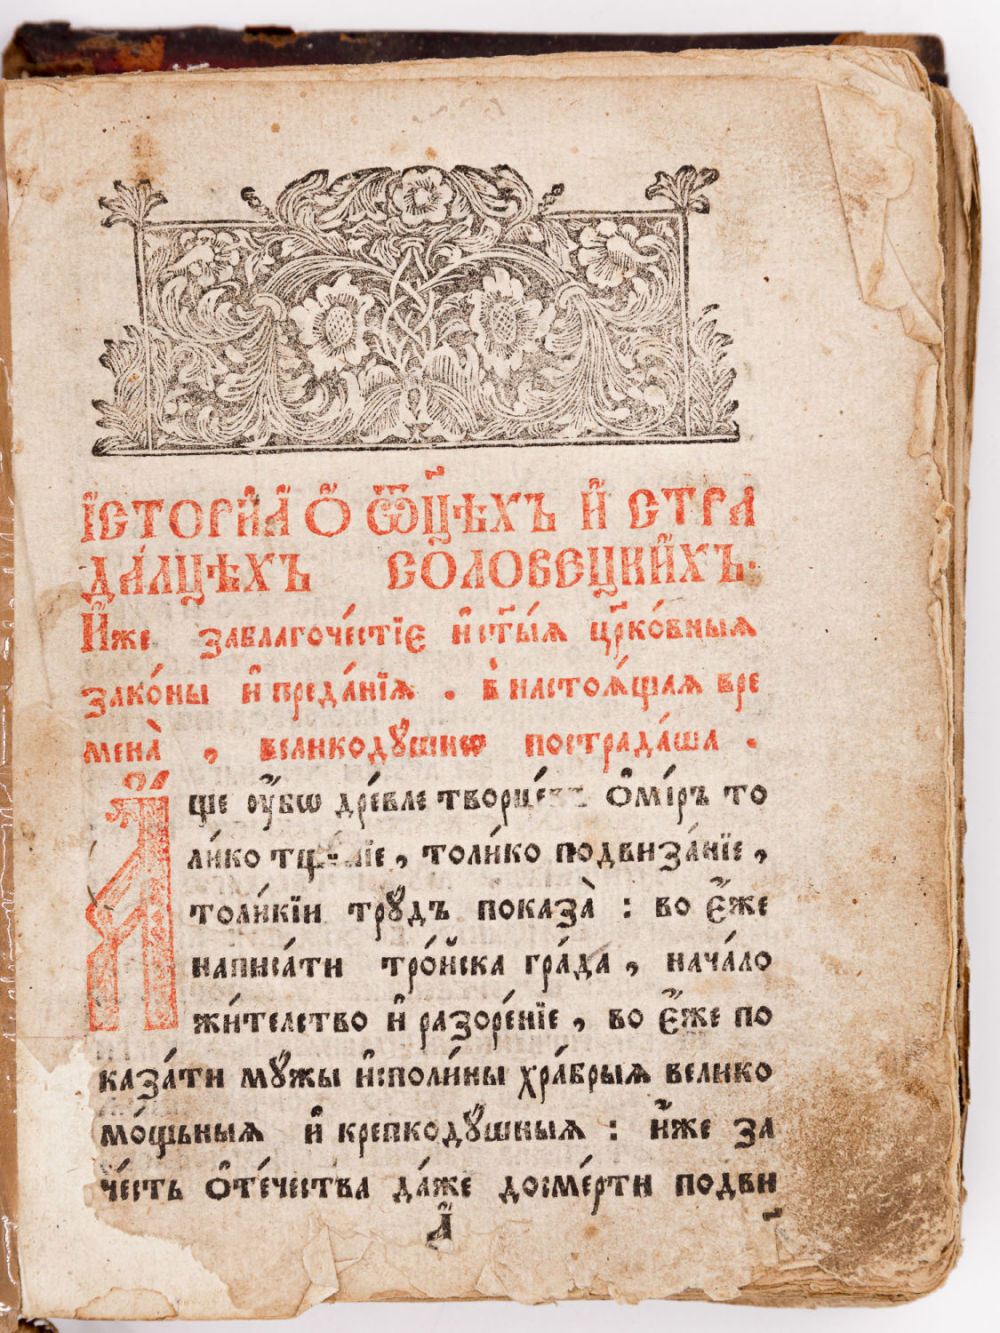 І҆СТОРИ́А Ѻ҆ Ѿц҃ѢХЪ И҆ СТРА
ДА́ЛЦѢХЪ СОЛОВЕЦКИ́ХЪ.
И҆́же заблагоче́стїе и҆ст҃ы́ѧ цр҃ко́вныѧ
зако́ны и҆ преда́нїѧ . в̾ настоѧ́щаѧ вре
мена̀ , великодꙋ́шнѡ пострада́ша .
А҆́ще ᲂу҆́бѡ дре́вле творце́въ ѻ҆ми́ръ то
ли́ко тща́нїе , толи́ко подвиза́нїе ,
толи́кїи трꙋ́дъ показа̀ : во є҆́же
написа́ти тро́йска гра́да , нача́ло
жи́телство и҆ разоре́нїе , во є҆́же по
каза́ти мꙋ́жы и҆споли́ны хра́брыѧ велико
мо́щьныѧ и҆ крепкодꙋ́шныѧ : и҆́же за
че́сть ѻ҆те́чества да́же досме́рти подви
а҃